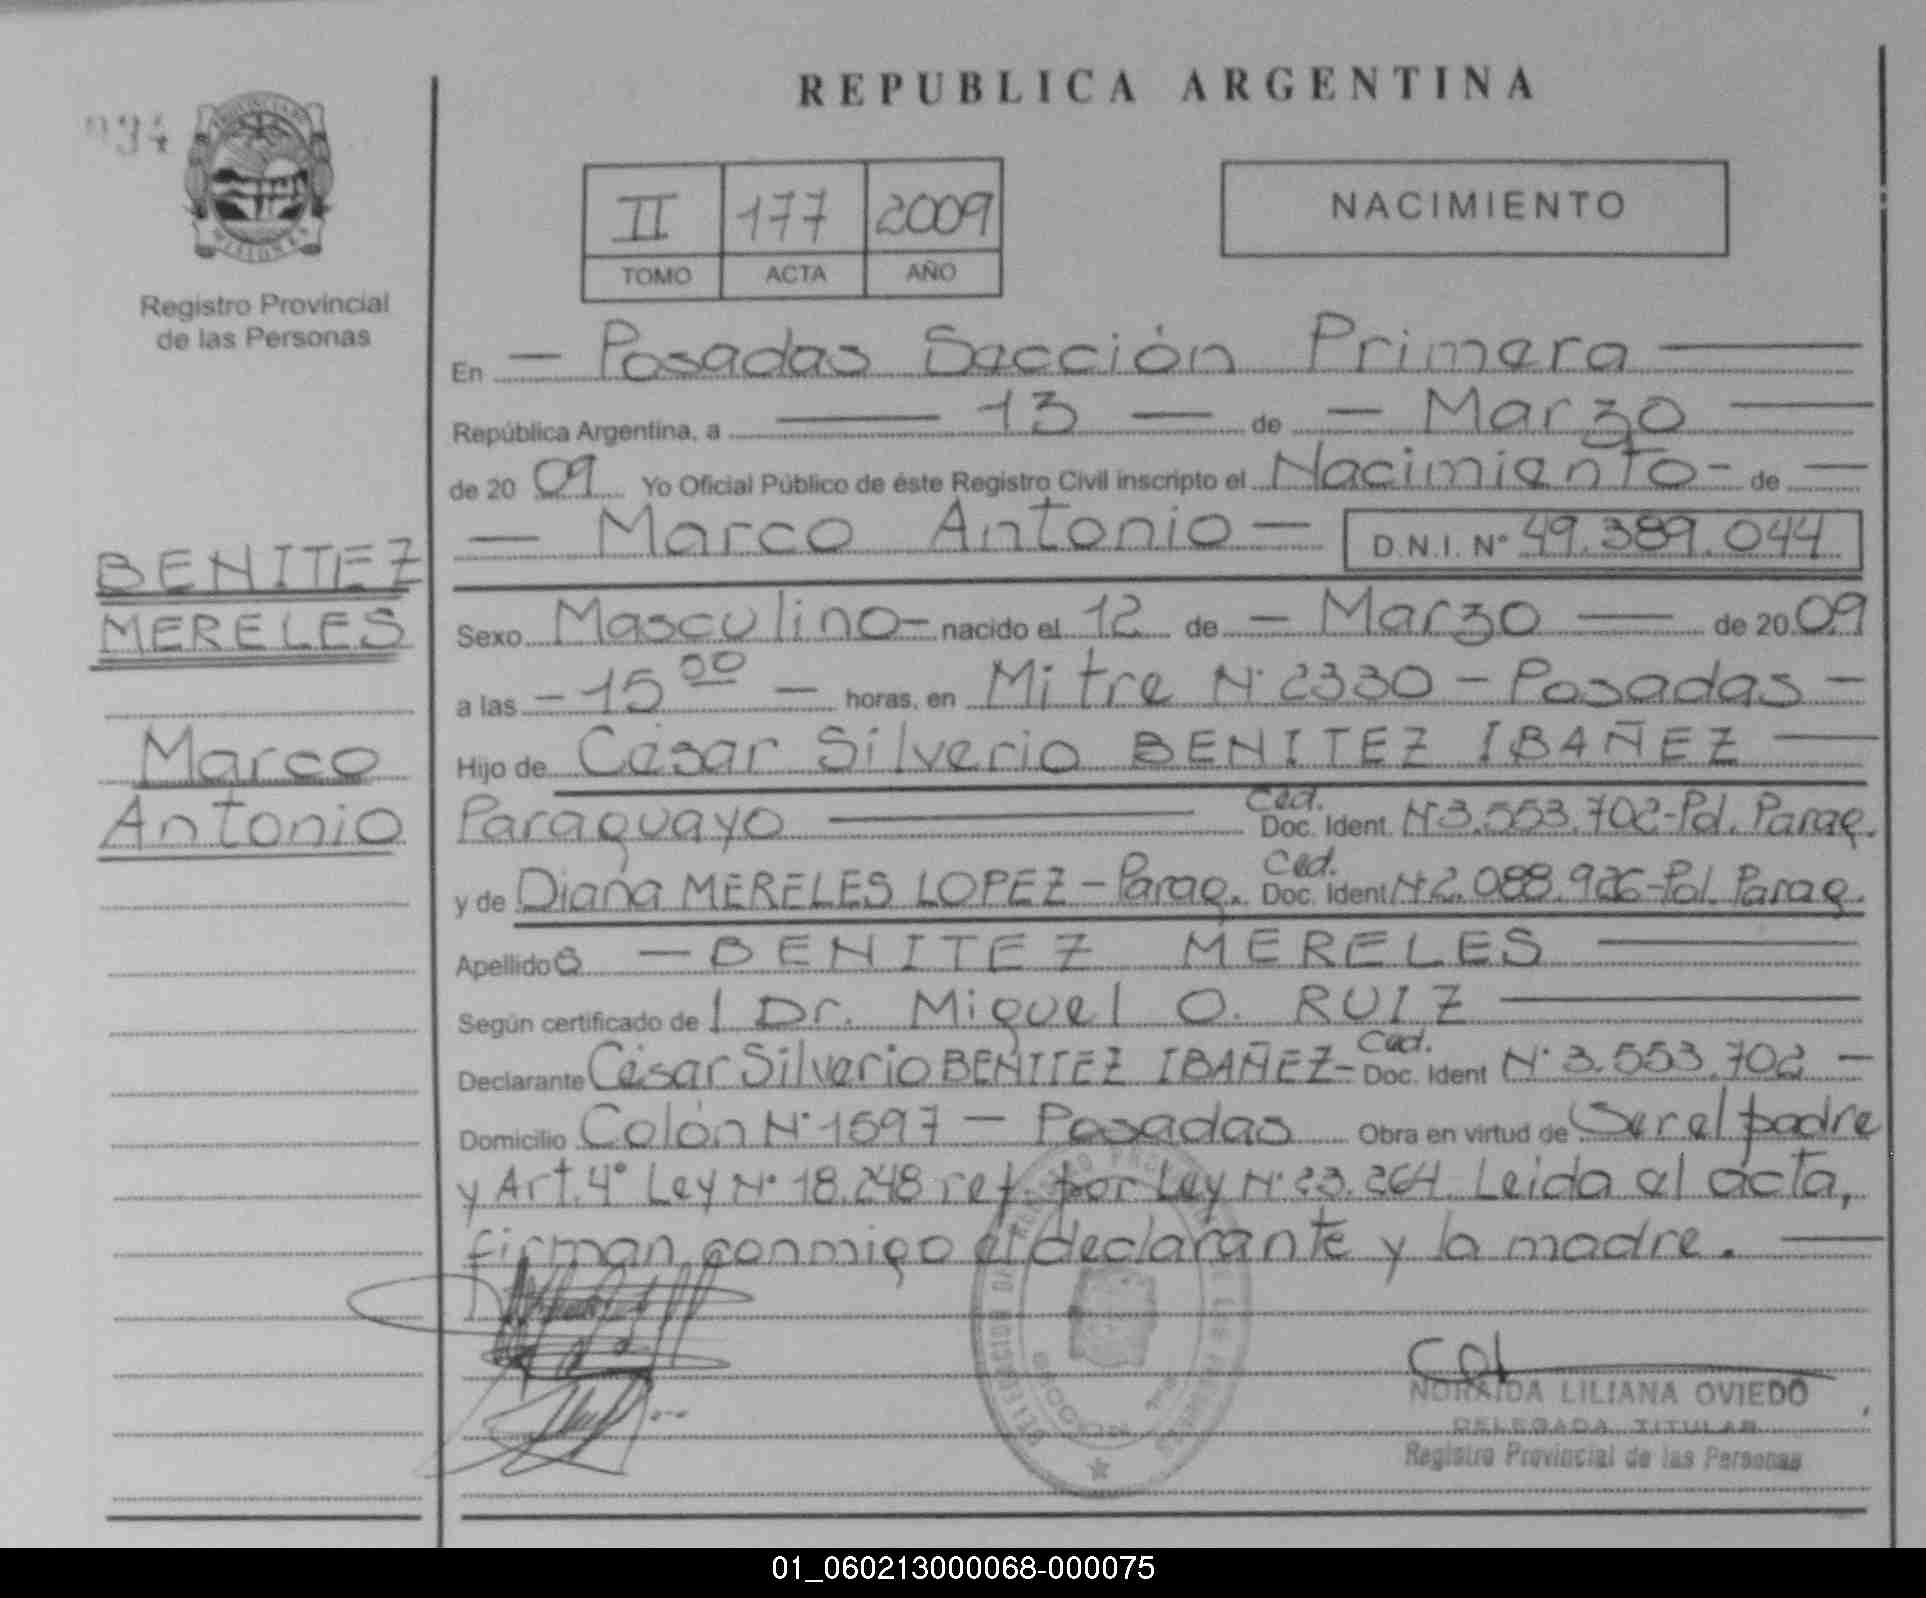 REPUBLICA ARGENTINA
934
II 177 2009
TOMO ACTA AÑO
NACIMIENTO
Registro Provincial
de las Personas
BENITEZ
MERELES
Marco
Antonio
En — Posadas Sección Primera —
República Argentina, a — 13 — de — Marzo —
de 20 09 Yo Oficial Público de éste Registro Civil inscripto el Nacimiento - de —
— Marco Antonio — D.N.I. Nº 49.389.044
Sexo Masculino - nacido el 12 de — Marzo — de 20 09
a las - 15 00 — horas, en Mitre Nº 2330 - Posadas -
Hijo de César Silverio BENITEZ IBAÑEZ —
Paraguayo — Ced. Doc. Ident. Nº 3.553.702-Pol. Parag.
y de Diana MERELES LOPEZ - Parag. Ced. Doc. Ident Nº 2.088.926-Pol. Parag.
Apellidos — BENITEZ MERELES —
Según certificado de l Dr. Miguel O. RUIZ —
Declarante César Silverio BENITEZ IBAÑEZ - Ced. Doc. Ident Nº 3.553.702 —
Domicilio Colón Nº 1597 — Posadas Obra en virtud de Ser el padre
y Art. 4º Ley Nº 18.248 ref. por Ley Nº 23.264. Leida el acta,
firman conmigo el declarante y la madre. —
NORAIDA LILIANA OVIEDO
DELEGADA TITULAR
Registro Provincial de las Personas
01_060213000068-000075